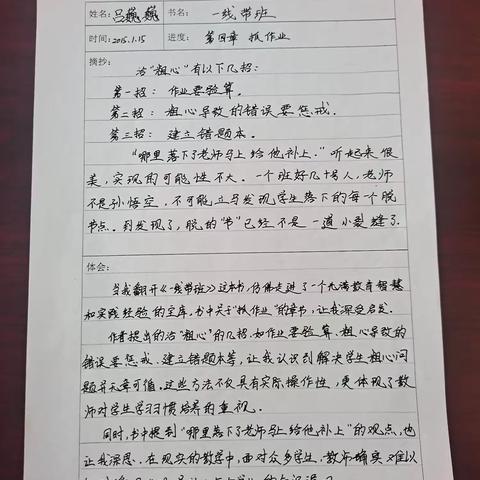 姓名：吕巍巍 书名：一线带班
时间：2025.1.15 进度：第四章 抓作业
摘抄：
治“粗心”有以下几招：
第一招：作业要验算。
第二招：粗心导致的错误要惩戒.
第三招：建立错题本。
“哪里落下了老师马上给他补上.”听起来很
美，实现的可能性不大。一个班好几十号人，老师
不是孙悟空，不可能立马发现学生落下的每个脱
节点。到发现了，脱的“节”已经不是一道小裂缝了.
体会：
当我翻开《一线带班》这本书，仿佛走进了一个充满教育智慧
和实践经验的宝库，书中关于“抓作业”的章节，让我深受启发.
作者提出的治“粗心”的几招，如作业要验算、粗心导致的
错误要惩戒、建立错题本等，让我认识到解决学生粗心问
题并无章可循.这些方法不仅具有实际操作性，更体现了教
师对学生学习习惯培养的重视。
同时，书中提到“哪里落下了老师马上给他补上”的观点，也
让我深思.在现实的教学中，面对众多学生，教师确实难以